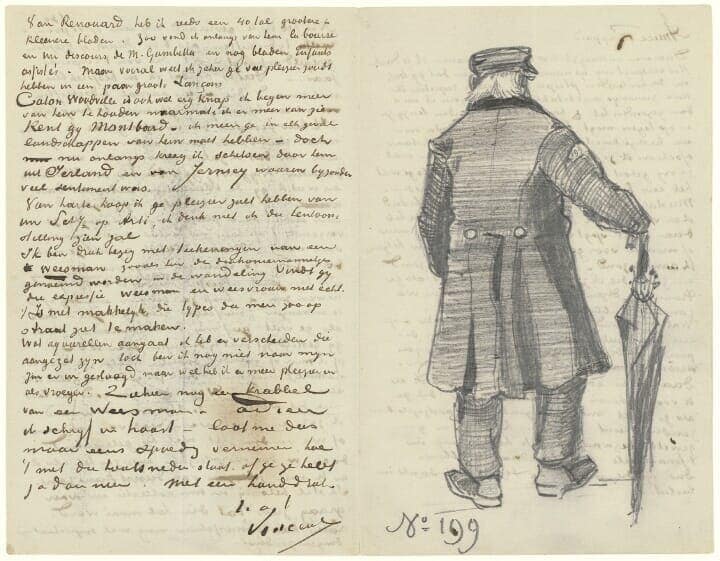 Van Renouard heb ik reeds een 40 tal grootere &
kleinere bladen. Zoo vond ik onlangs van hem la bourse
en un discours de M. Gambetta en nog bladen Enfants
assistés. Maar vooral weet ik zeker ge veel pleizier zoudt
hebben in een paar groote Lançons
Caton Woodville is ook wel erg knap ik begin meer
van hem te houden naarmate ik er meer van zie
Kent gij Montbard – ik meen ge in elk geval
landschappen van hem moet hebben – doch
nu onlangs kreeg ik schetsen door hem
uit Ierland en van Jersey waarin bijzonder
veel sentiment was.
Van harte hoop ik ge pleizier zult hebben van
uw op Arti, ik denk niet ik die tentoon-
stelling zien zal
Ik ben druk bezig met teekeningen van een
weesman zooals hier de diakoniemannetjes
genoemd worden in de wandeling Vindt gij
die expressie weesman en weesvrouw niet echt.
't Is niet makkelijk die types die men zoo op
straat ziet te maken.
Wat aquarellen aangaat ik heb er verscheiden die
aangezet zijn toch ben ik nog niet naar mijn
zin er in geslaagd maar wel heb ik er meer pleizier in
als vroeger. Ziehier nog een krabbel
van een Weesman. adieu
ik schrijf in haast – laat me dus
maar eens spoedig vernemen hoe
't met die houtsneden staat. of ge ze hebt
ja dan neen. Met een handdruk.
t. à t.
Vincent
No 199